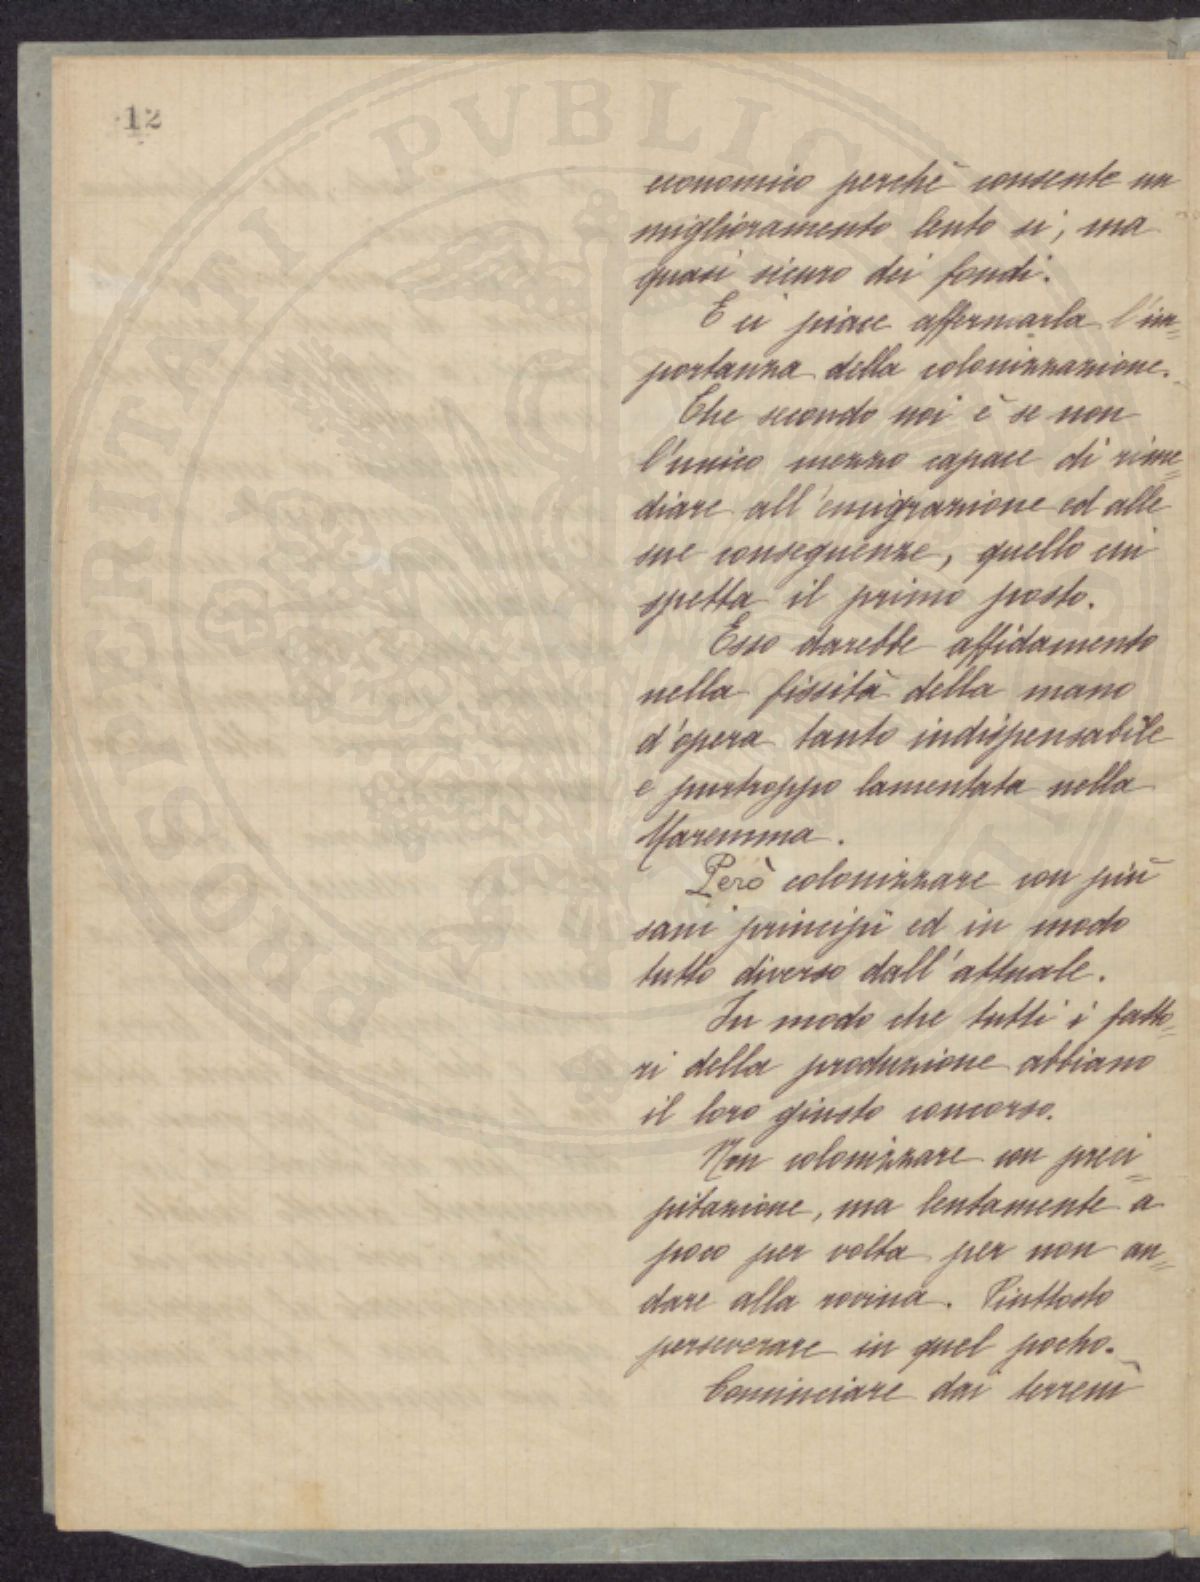 12
economico perchè consente un
miglioramento lento si, ma
quasi sicuro dei fondi.
E ci piace affermarla l'im=
portanza della colonizzazione.
Che secondo noi è se non
l'unico mezzo capace di rime=
diare all'emigrazione ed alle
sue conseguenze, quello cui
spetta il primo posto.
Esso darebbe affidamento
nella fissità della mano
d'opera tanto indispensabile
e purtroppo lamentata nella
Maremma.
Però colonizzare con più
sani principii ed in modo
tutto diverso dall'attuale.
In modo che tutti i fatto=
ri della produzione abbiano
il loro giusto concorso.
Non colonizzare con preci=
pitazione, ma lentamente a
poco per volta per non an=
dare alla rovina. Piuttosto
perseverare in quel pocho.
Cominciare dai terreni
PROSPERITATI PVBLICAE